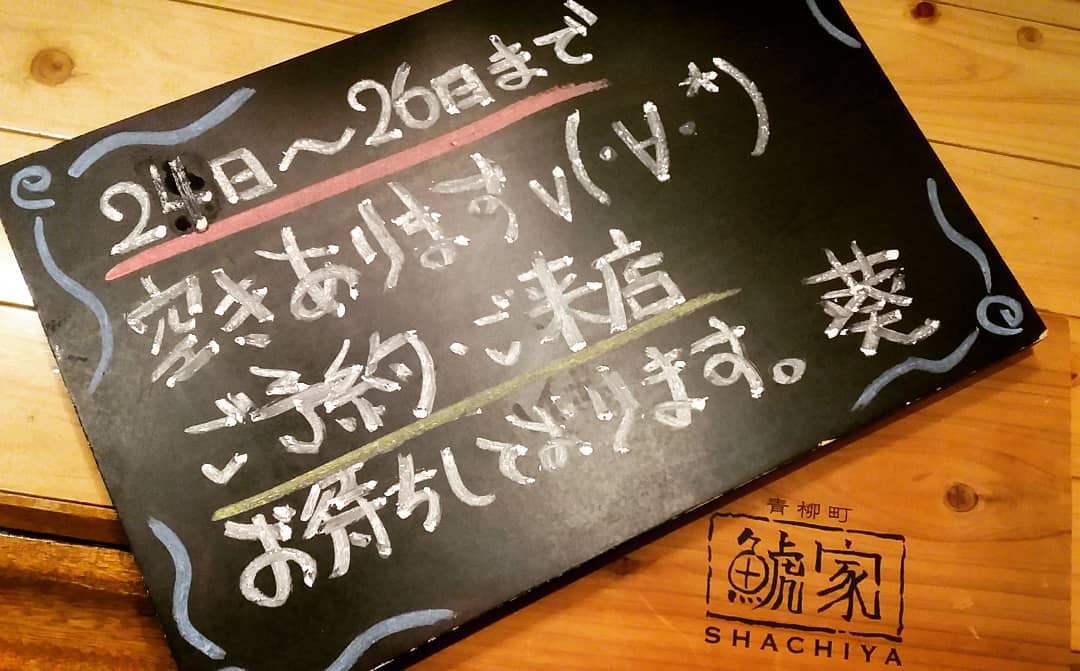 24日〜26日まで
空きありますv(・∀・*)
ご予約・ご来店
お待ちしております。
葵
青柳町
鯱家
SHACHIYA